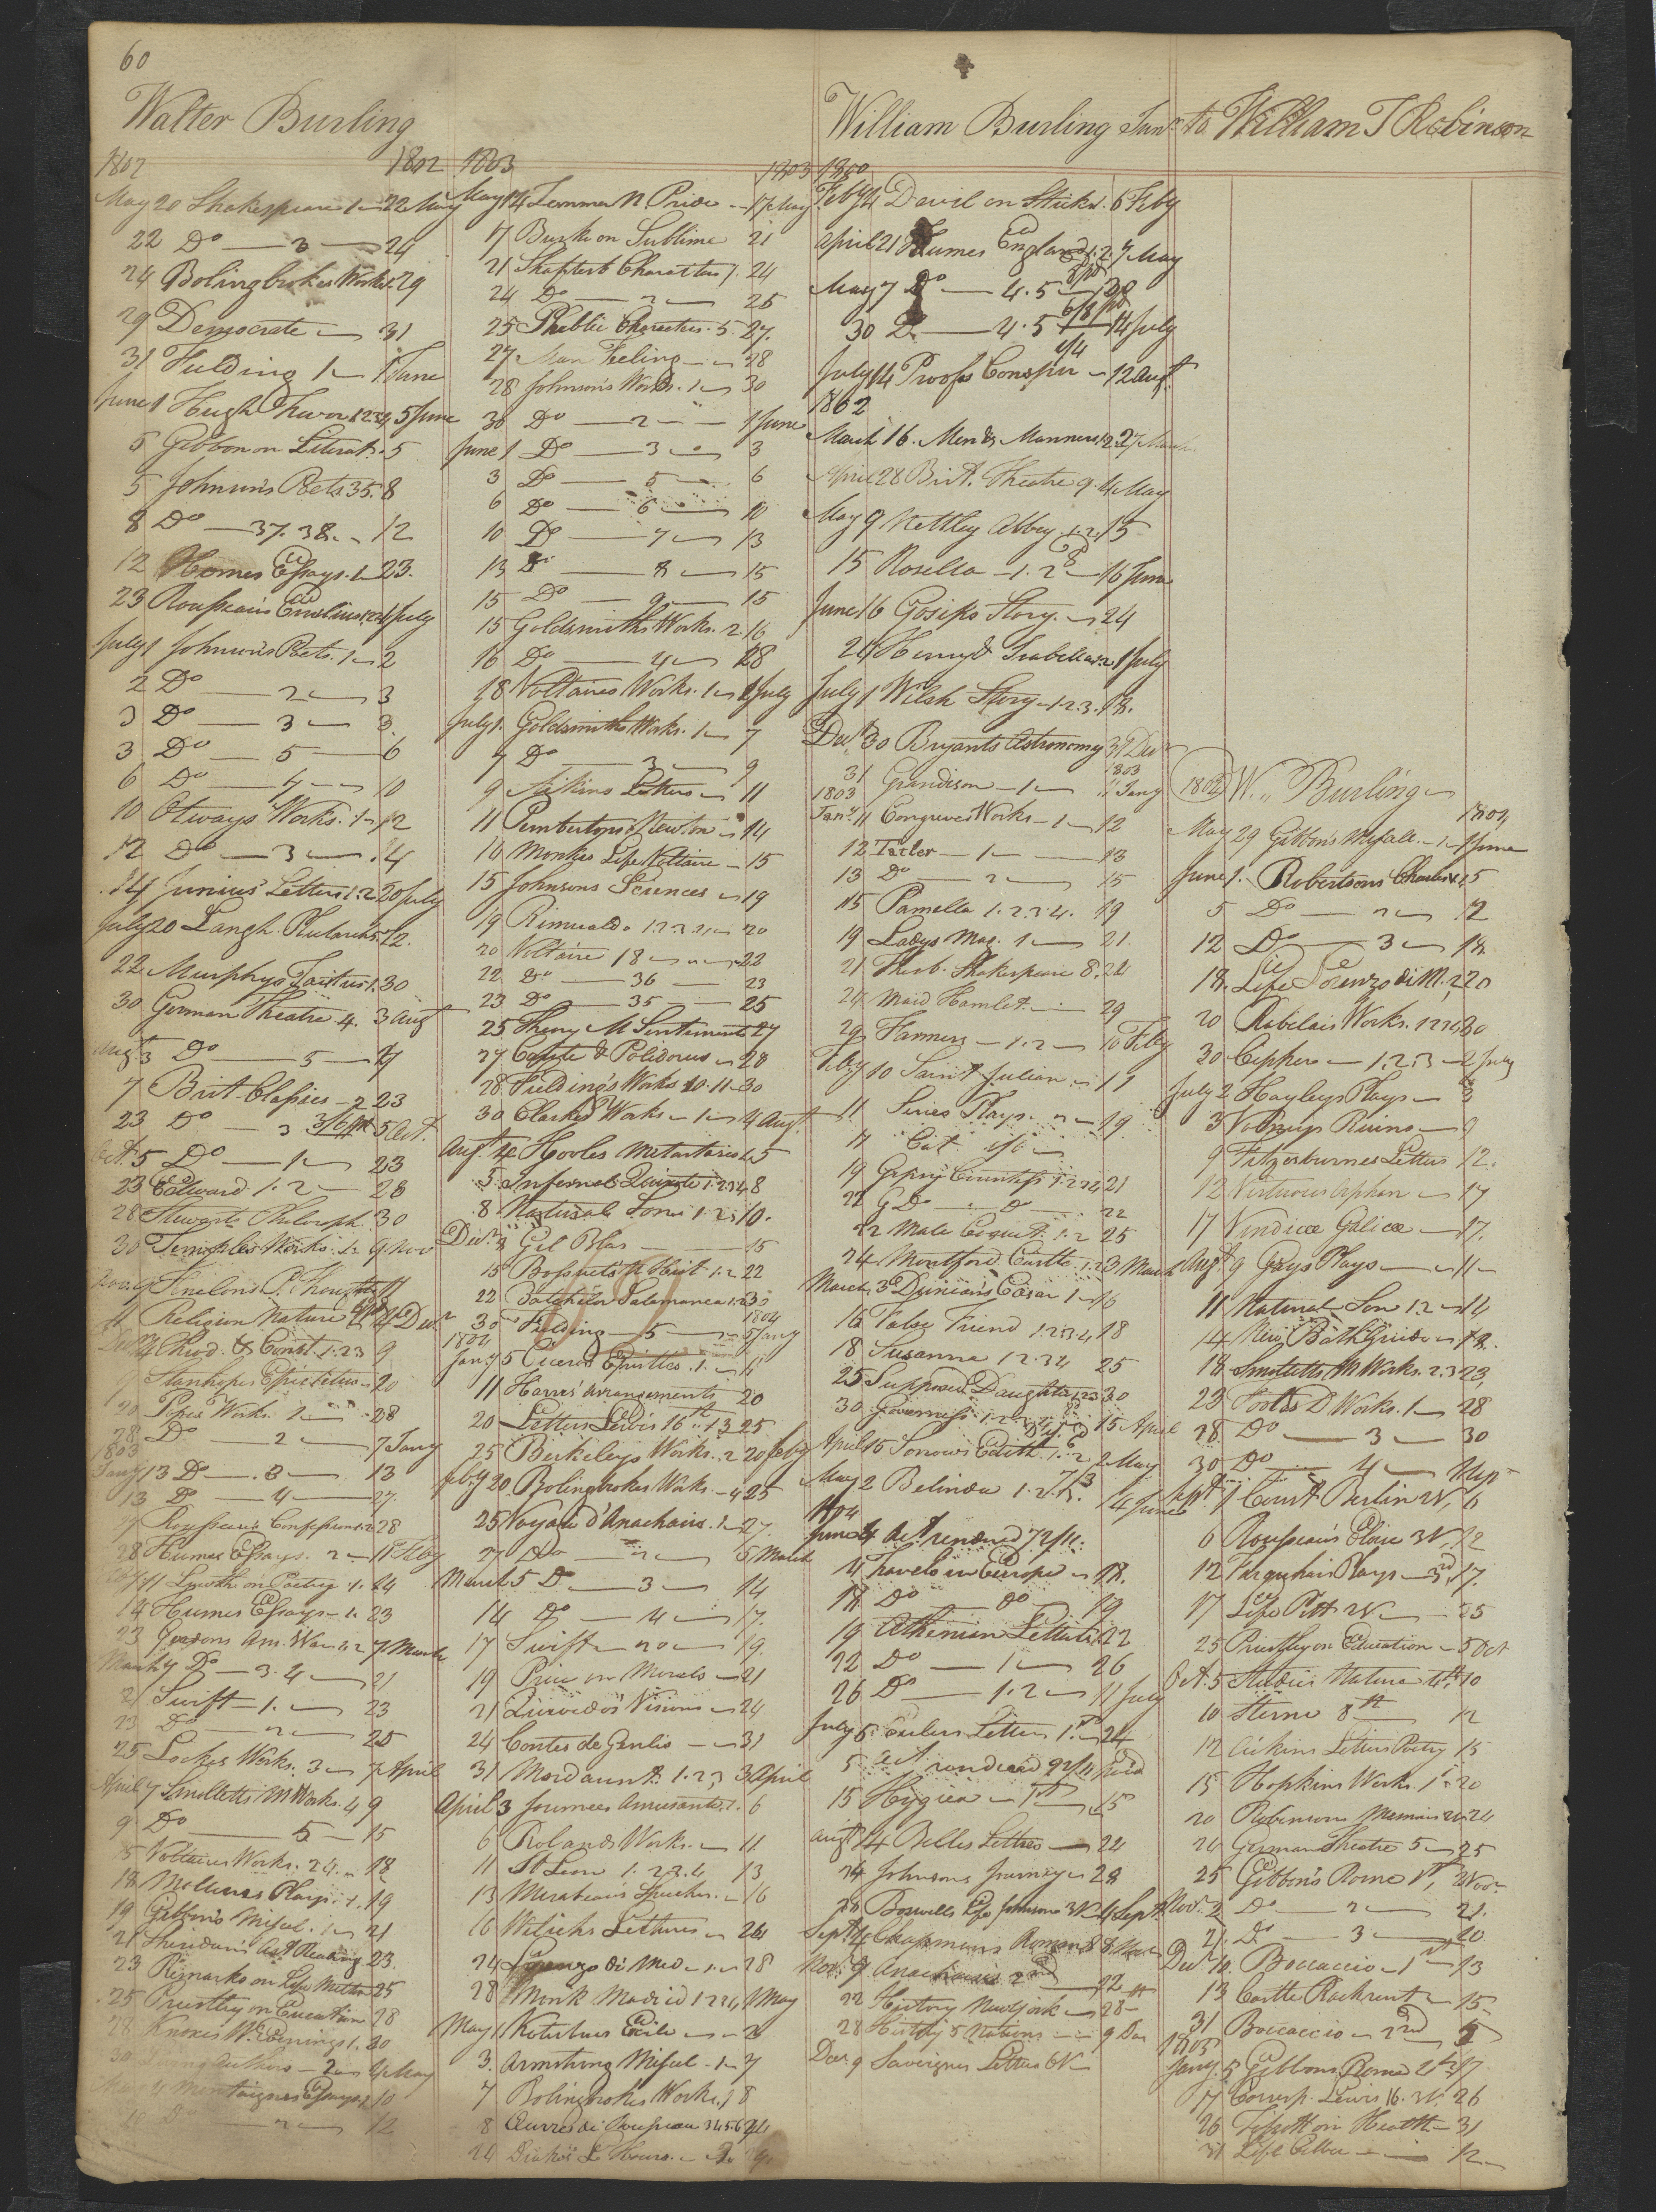 60
Walter Burling
1802 1802
May 20 Shakespeare 1 22 May
22 Do 3 24
24 Bolingbrokes Works 1. 29
29 Democrate 31
31 Fielding 1 1 June
June 1 Hugh Trevor 1.2.3.4 5 June
5 Gibbon on Literat. 5
5 Johnson's Poets 35. 8
8 Do 37. 38. 12
12 Homes Essays. 1 23.
23 Rousseau's Emilius 1 July
July 1 Johnson's Poets. 1 2
2 Do 2 3
3 Do 3 3.
3 Do 5 6
6 Do 4 10
10 Otways Works. 1 12
12 Do 3 14
14 Junius' Letters 1.2 20 July
July 20 Langh. Plutarch 22.
22 Murphys Tacitus 1. 30
30 German Theatre 4. 3 Augt
Augt 3 Do 5 7
7 Brit. Classics 2 23
23 Do 3 3/6 pd 5 Oct.
Oct. 5 Do 1 23
23 Edward 1.2 28
28 Stewarts Philosph. 30
30 Temples Works. 1.2 9 Nov
Nov. 9 11
11 Religion Nature 4 Decr
4 Chrod. & Const. 1.2.3 9
9 Stanhopes Epictetus 20
20 Popes Works. 1 28
28 Do 2 7 Jany
1803
Jany 13 Do 3 13
13 Do 4 27.
Rousseau's Confessions 1.2 28
28 Humes Essays. 2 11 Feby
11 Lowth on Poetry 1. 14
14 Humes Essays 1. 23
23 Gordons Am. War 1.2 7 March
March 7 Do 3.4 21
21 Swift 1. 23
23 Do 2 25
25 Lockes Works. 3 7 April
April 7 Smolletts M Works. 4 9
9 Do 5 15
15 Voltaires Works. 24. 18
18 Molieres Plays. 1. 19
19 Gibbon's Miscel. 1 21
21 Sheridan's Art Reading 23.
23 Remarks on Life Milton 25
25 Priestley on Education 28
28 Knoxes W. Evenings 1. 30
30 Living Authors 2 4 May
May 4 Montaignes Essays 1 10
10 Do 2 12
1803 1803
May 14 Lemmer N. Price 17 May
17 Burke on Sublime 21
21 Shaftesb Charactus 1. 24
24 Do 2 25
25 Public Characters. 5. 27.
27 Man Feeling 28
28 Johnson's Works. 1 30
30 Do 2 1 June
June 1 Do 3 3
3 Do 5 6
6 Do 6 10
10 Do 7 13
13 Do 8 15
15 Do 9 15
15 Goldsmiths Works. 2. 16
16 Do 4 28
28 Voltaires Works. 1 1 July
July 1. Goldsmiths Works. 1 7
7 Do 3 9
9 Aikins Letters 11
11 Pembertons Newton 14
14 Monkes Life Voltaire 15
15 Johnsons Sciences 19
19 Rimualdo 1.2.3.4 20
20 Voltaire 18 22
22 Do 36 23
23 Do 35 25
25 Theory M Sentiments 27
27 Comte & Polidorus 28
28 Fielding's Works 10.11 30
30 Clarkes Works 1 4 Augt.
Augt 4 Hooles Metastasio 1. 5
5 Infernal Quixote 1.2.3.4 8
8 Natural Son 1.2 10.
Decr. 3 Gil Blas 15
15 Bossuets U. Hist 1.2 22
22 Batchelor Salamanca 1.2 30
1804
30 Fielding 5 5 Jany
1804
Jany 5 Ciceros Epistles. 1. 11
11 Harris' Arrangements 20
20 Letters Lewis 16th 1.3 25
25 Berkeleys Works. 2 20 Feby
Feby 20 Bolingbrokes Works. 4 25
25 Voyage d'Anacharis. 1 27.
27 Do 2 5 March
March 5 Do 3 14
14 Do 4 17.
17 Swift 20 19.
19 Price on Morals 21
21 Quevedos Visions 24
24 Contes de Genlis 31
31 Mordaunt 1.2.3 3 April
April 3 Journees Amusantes. 1. 6
6 Rolands Works. 11
11 St Leon 1.2.3.4 13
13 Mirabeau's Speeches. 16
16 Welichs Lectures 24
24 Lorenzo di Med. 1 28
28 Monk Madrid 1.2.3.4 1 May
May 1 Kotzbues Exile 3
3. Armstrong Miscel. 1 7
7 Bolingbrokes Works. 1 8
8 Œuvres de Rousseau 3.4.5.6
24 Drakes L Hours.
William Burling Junr to William T Robinson
1800
Feby 4 Devil on Sticks. 6 Feby
April 21 Humes England 1.2 7 May
May 7 Do 4.5
30 Do 4.5 14 July
July 14 Proofs Conspir 12 Augt.
1802
March 16. Men & Manners 1.2 27 March
April 28 Brit. Theatre 9. 4 May
May 9 Nettley Abbey 1.2 15
15 Rosella 1.2 16 June
June 16 Gosips Story. 24
24 Henry & Isabella 1.2 1 July
July 1 Welsh Story 1.2.3. 18.
Decr. 30 Bryants Astronomy 31 Decr
1803
31 Grandison 1 11 Jany
1803
Jany. 11 Congreves Works 1 12
12 Tatler 1 13
13 Do 2 15
15 Pamella 1.2.3.4. 19
19 Ladys Mag. 1 21.
21 Theob. Shakespeare 8. 24
24 Maid Hamlet. 29
29 Farmers 1.2 10 Feby
Feby 10 Saint Julian 11
11 Series Plays. 2 19
11 Cat 1/6
19 Gipsy Countess 1.2.3.4 21
22 Do Do 22
22 Male Coquet. 1.2 25
24 Montford Castle 1.2 3 March
March 3 Duncan's Cæsar 1 16
16 False Friend 1.2.3.4 18
18 Susanna 1.2.3.4 25
25 Supposed Daughter 1.2.3 30
30 Governess 1.2.3.4 15 April
April 15 Sorrows Edith 1.2 2 May
May 2 Belinda 1.2.3. 14 June
1804
June 4 Act renderd 72/11.
11 Travels in Europe 18.
18 Do Do 19
19 Athenian Letters 22
22 Do 1 26
26 Do 1.2 11 July
July 5 Eulers Letters 1.st 24
5 act rendered 92/11 paid
15 Hygiea 1st 15
Augt 14 Belles Lettres 24
24 Johnsons Journey 28
28 Boswells Life Johnson 3 V 4 Sept.
Sept 4 Chapmans Roman 8 Nov
Nov. 9 Anacharsis 2nd 22
22 History New York 28th
28 History 5 Nations 9 Dec
Decr. 9 Savoignes Letters 6 V
1802 W. Burling
1804
May 29 Gibbon's Miscell. 1 1 June
June 1. Robertsons Charles V. 1 5
5 Do 2 12
12 Do 3 18
18. Life Lorenzo di M. 1.2 20
20 Rabelais Works. 1.2.3.4 30
30 Cepherо 1.2.3 2 July
July 2 Hayleys Plays 3
3 Volneys Ruins 9
9 Fitzosburnes Letters 12.
12 Virtuous Orphan 17
17 Vindicæ Galicæ 17.
Augt. 9 Gays Plays 11
11 Natural Son 1.2 14
14 New Bath Guide 18.
18 Smolletts M Works. 2.3 23,
23 Footes D Works. 1 28
28 Do 3 30
30 Do 4 1 Sep
Sept. 1 Court Berlin 2 V, 6
6 Rousseau's Eloise 3 V, 12
12 Farquhars Plays 3rd, 17.
17 Life Pitt 2 V 25
25 Priestley on Education 5 Oct
Oct. 5 Studies Nature 4th 10
10 Sterne 8th 12
12 Aickins Letters Poetry 15
15 Hopkins Works. 1st 20
20 Robinsons Memoirs 2 V 24
24 German Theatre 5 25
25 Gibbon's Rome 1st, 2 Nov.
Nov. 2 Do 2 21.
21. Do 3 20
Decr. 10. Boccaccio 1st 13
13 Castle Rackrent 15
31 Boccaccio 2nd 5
1805
Jany. 5 Gibbons Rome 2d 17
17 Corresp. Lewis 16. 3 V. 26
26 Tissott on Health 31
31 Life Cibber 12